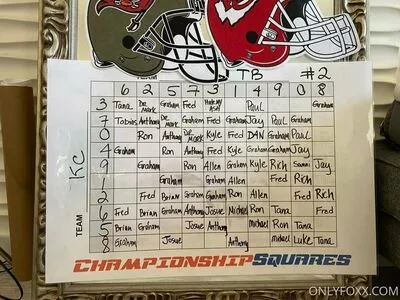 TEAM TB #2
6 2 5 7 3 1 4 9 0 8
3 Tana Dr. Mark Graham Fred Paul Graham
7 Tobias Anthony Dr. Mark Graham Fred Graham Jay Paul Graham
0 Ron Anthony Dr. Mark Kyle Fred DAN Graham Paul
4 Graham Ron Anthony Fred Kyle Graham Graham Jay
9 Graham Ron Allen Graham Kyle Rich Jay
1 Graham Graham Fred Rich
2 Fred Brian Graham Ron Allen Fred Rich
6 Fred Brian Graham Anthony Josue Michael Ron Tana Fred
5 Brian Graham Josue Anthony Michael Ron Tana
8 Graham Josue Anthony Michael Luke Tana
KC
TEAM
CHAMPIONSHIP SQUARES
ONLYFOXX.COM